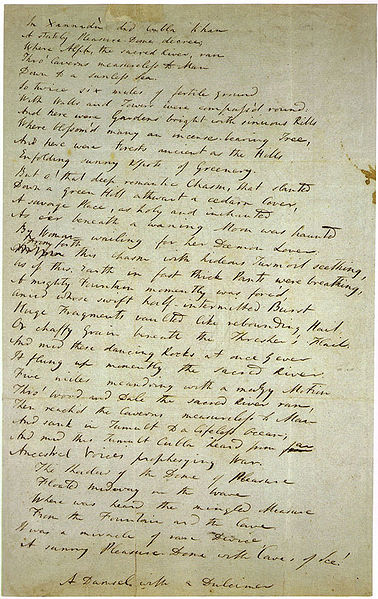 In Xannadù did Cubla Khan
A stately Pleasure-Dome decree;
Where Alph, the sacred River, ran
Thro' Caverns measureless to Man
Down to a sunless Sea.
So twice six miles of fertile ground
With Walls and Towers were compass'd round:
And here were Gardens bright with sinuous Rills
Where blossom'd many an incense-bearing Tree,
And here were Forests ancient as the Hills
Enfolding sunny Spots of Greenery.
But o! that deep romantic Chasm, that slanted
Down a green Hill athwart a cedarn Cover,
A savage Place, as holy and inchanted
As e'er beneath a waning Moon was haunted
By Woman wailing for her Daemon Lover:
From forth this Chasm with hideous Turmoil seething,
As if this Earth in fast thick Pants were breathing,
A mighty Fountain momently was forc'd
Amid whose swift half-intermitted Burst
Huge Fragments vaulted like rebounding Hail,
Or chaffy Grain beneath the Thresher's Flail.
And mid these dancing Rocks at once & ever
It flung up momently the sacred River.
Five miles meandring with a mazy Motion
Thro' Wood and Dale the sacred River ran,
Then reach'd the Caverns measureless to Man
And sank in Tumult to a lifeless Ocean;
And mid this Tumult Cubla heard from far
Ancestral Voices prophesying War.
The Shadow of the Dome of Pleasure
Floated midway on the Wave
Where was heard the mingled Measure
From the Fountain and the Cave.
It was a miracle of rare Device
A sunny Pleasure-Dome with Caves of Ice!
A Damsel with a Dulcimer